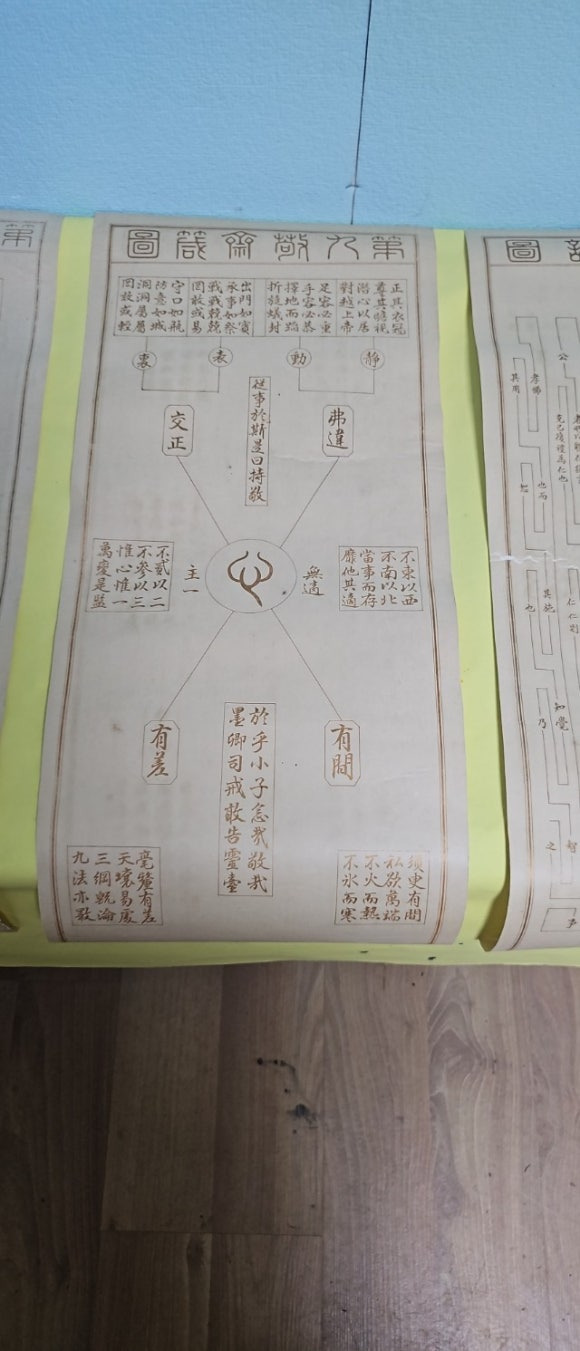 第九敬齋箴圖
正其衣冠
尊其瞻視
潛心以居
對越上帝
足容必重
手容必恭
擇地而蹈
折旋蟻封
出門如賓
承事如祭
戰戰兢兢
罔敢或易
守口如瓶
防意如城
洞洞屬屬
罔敢或輕
静
動
表
裏
弗違
從事於斯是曰持敬
交正
不東以西
不南以北
當事而存
靡他其適
無適
心
主一
不貳以二
不參以三
惟心惟一
萬變是監
有間
於乎小子念哉敬哉
墨卿司戒敢告靈臺
有差
須臾有間
私欲萬端
不火而熱
不氷而寒
毫釐有差
天壤易處
三綱旣淪
九法亦斁
第
圖
公
孝悌
其用
克己復禮爲仁也
也而
其施
也
知覺
乃
智
之